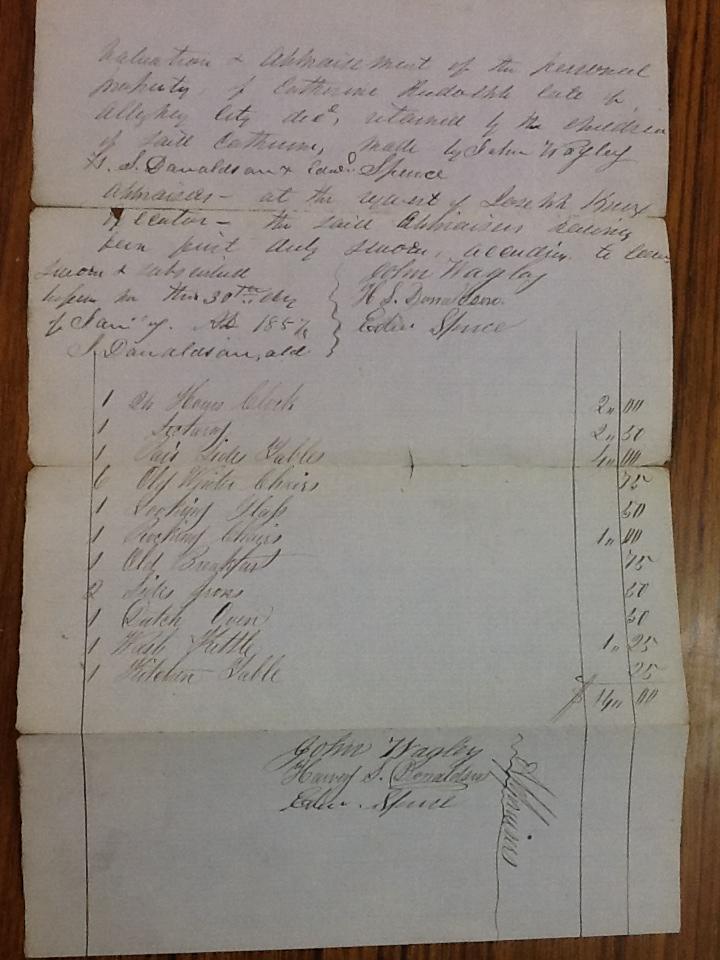 Valuation & Appraisement of the personal
property, of Catherine Rudolph late of
Allegheny City decd, retained by the children
of said Catherine, made by John Wagley
H. S. Donaldson & Edwd Spence
appraisers - at the request of Joseph
Executor - the said Appraisers having
been first duly sworn, according to law
sworn & subscribed
before me this 30th day
of Jany. AD 1857
J. Donaldson, ald
John Wagley
H S. Donaldson.
Edw Spence
1 24 Hours Clock 2,, 00
1 2,, 50
1 Pair Side Tables 4,, 00
6 Old Chairs 75
1 Looking Glass 50
1 Rocking Chairs 1,, 00
1 Old Breakfast 75
2 Sides 50
1 Dutch Oven 50
1 Wash Kettle 1,, 25
1 Kitchen Table 25
$ 14,, 00
John Wagley
Harvey S. Donaldson
Edw. Spence
Appraisers